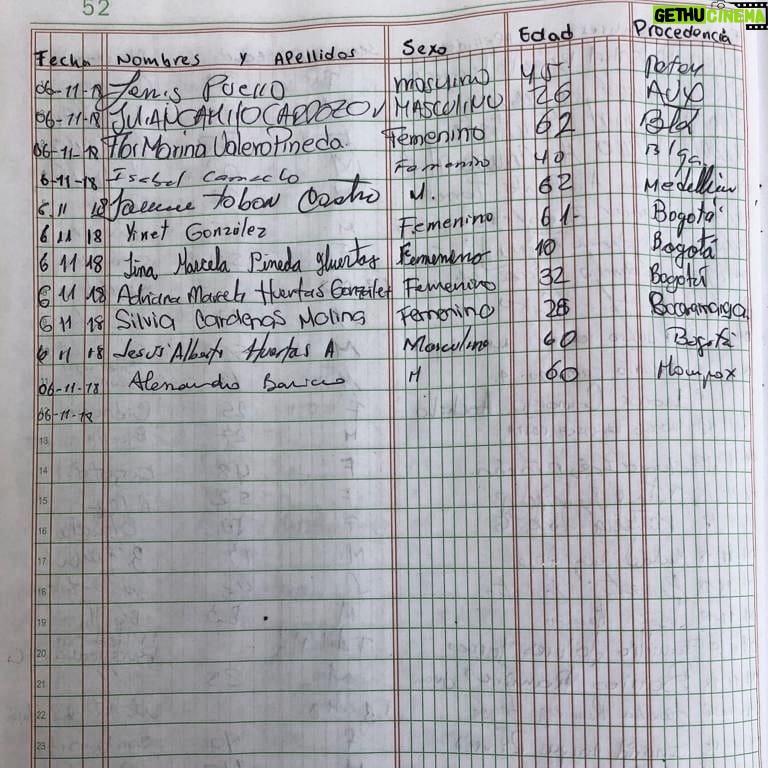 52
GETHUCINEMA
Fecha Nombres y Apellidos Sexo Edad Procedencia
06-11-18 Puello masculino 45
06-11-18 JUAN CAMILO CARDOZO MASCULINO 26
06-11-18 Flor Marina Valero Pineda. Femenino 62
6-11-18 Isabel Camacho Femenino 40 B/ga
6 11 18 Jaime Tobon Castro M. 62 Medellin
6 11 18 Yinet González Femenino 61 Bogotá
6 11 18 Lina Marcela Pineda Huertas Femenino 10 Bogotá
6 11 18 Adriana Marcela Huertas González Femenino 32 Bogotá
6 11 18 Silvia Cardenas Molina Femenino 28 Bucaramanga
6 11 18 Jesus Alberto Huertas A Masculino 60 Bogotá
06-11-18 M 60 Mompox
06-11-18
13
14
15
16
17
18
19
20
21
22
23